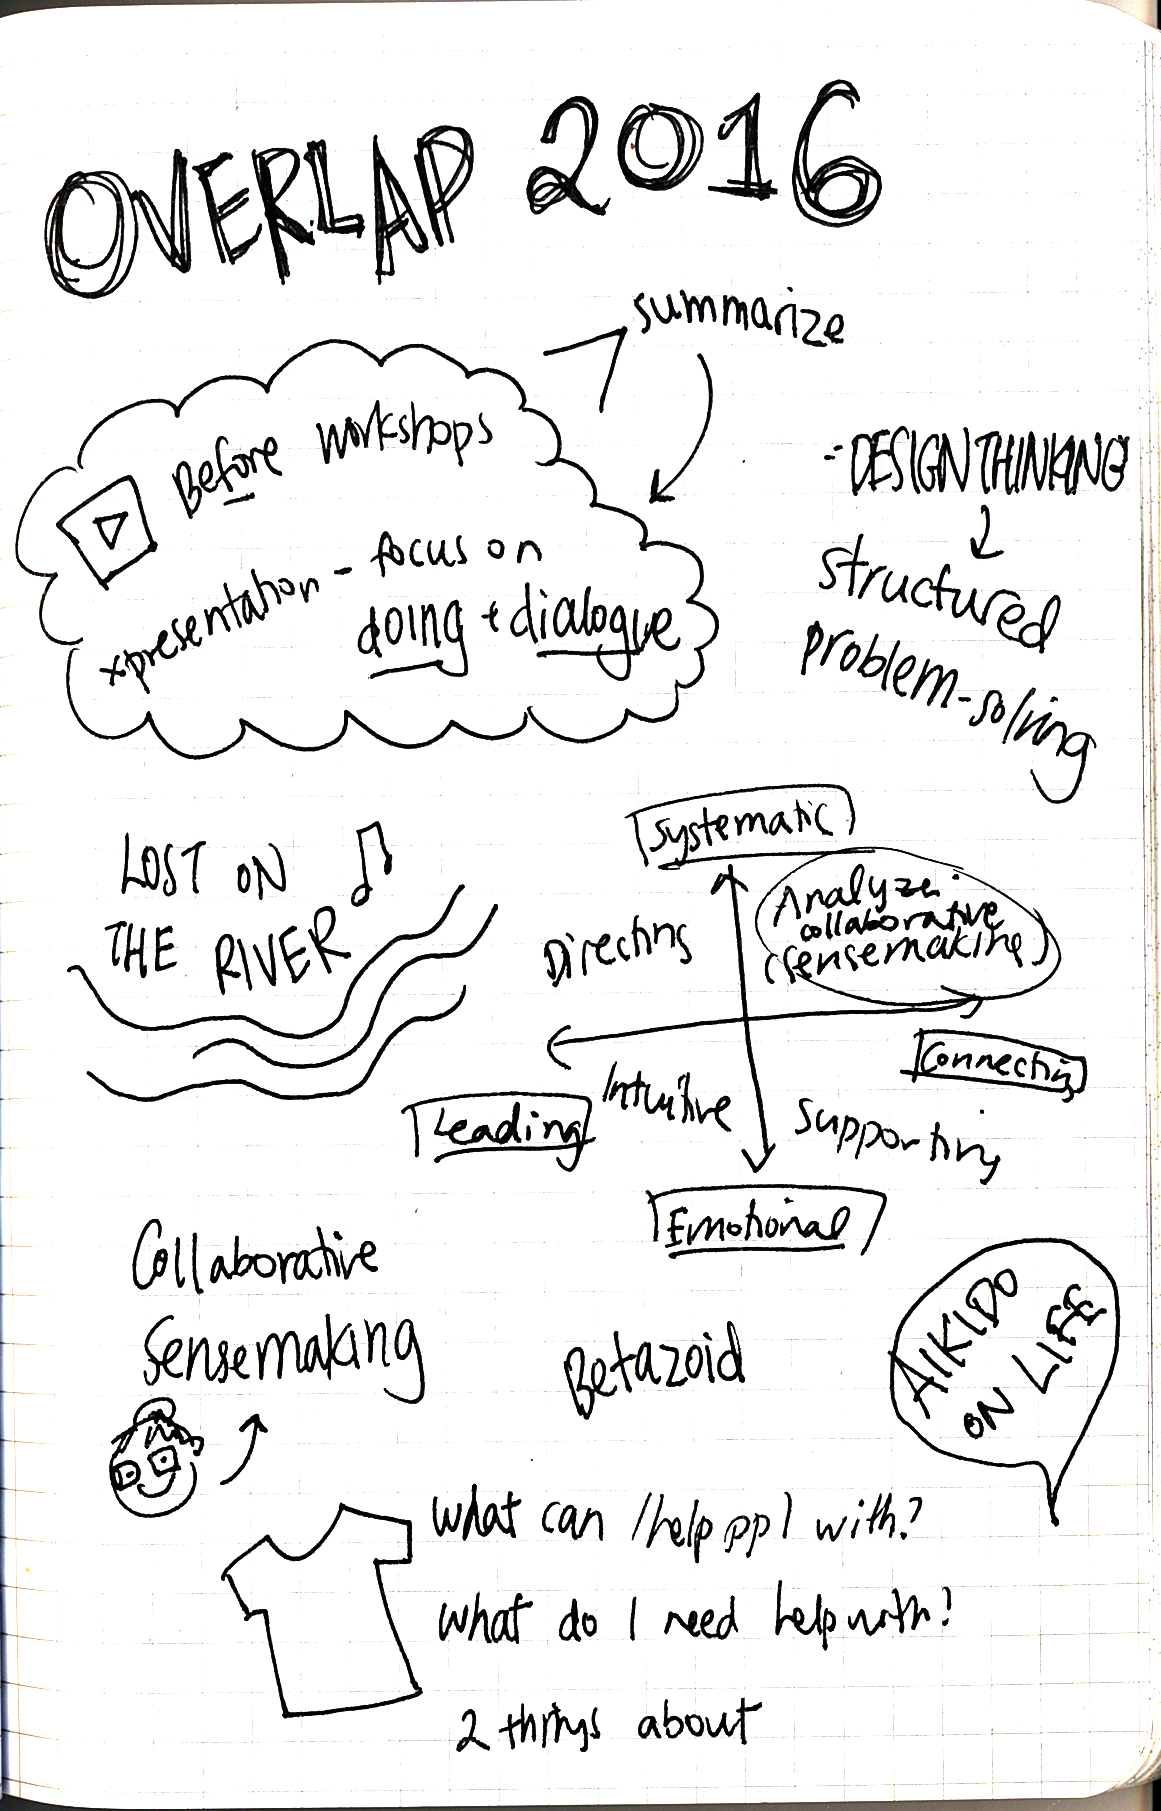 OVERLAP 2016
summarize
Before workshops
xpresentation - focus on
doing + dialogue
-DESIGN THINKING
structured
problem-solving
LOST ON
THE RIVER
Systematic
Directing
Analyze:
collaborative
(sensemaking)
Connecting
Leading
Intuitive
Supporting
Emotional
Collaborative
Sensemaking
Betazoid
AIKIDO
ON LIFE
What can I help ppl with?
What do I need help with?
2 things about